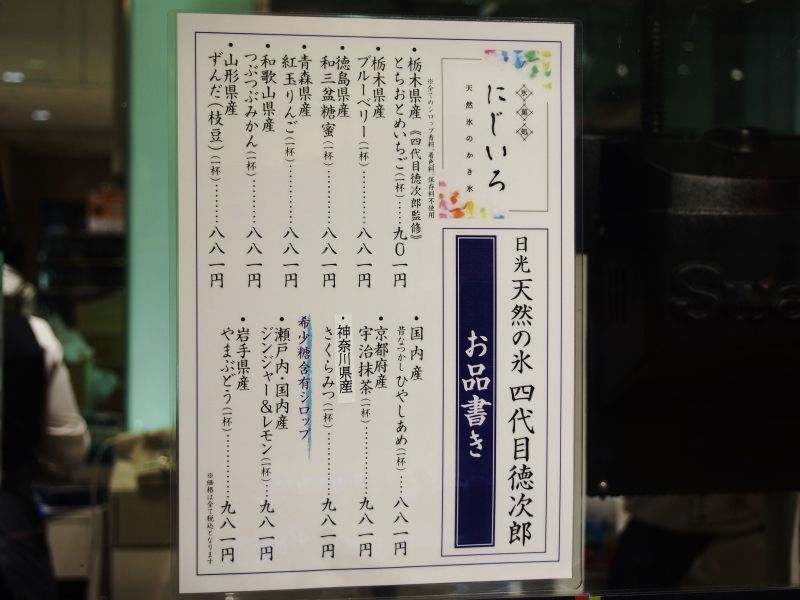 氷菓処
にじいろ
天然氷のかき氷
日光 天然の氷 四代目徳次郎
お品書き
※全てのシロップ香料、着色料、保存料不使用
・栃木県産《四代目徳次郎監修》
とちおとめいちご(一杯)……九〇一円
・栃木県産
ブルーベリー(一杯)………八八一円
・徳島県産
和三盆糖蜜(一杯)………八八一円
・青森県産
紅玉りんご(一杯)………八八一円
・和歌山県産
つぶつぶみかん(一杯)………八八一円
・山形県産
ずんだ(枝豆)(一杯)………八八一円
・国内産
昔なつかし ひやしあめ(一杯)……八八一円
・京都府産
宇治抹茶(一杯)………九八一円
・神奈川県産
さくらみつ(一杯)………九八一円
希少糖含有シロップ
・瀬戸内・国内産
ジンジャー&レモン(一杯)……九八一円
・岩手県産
やまぶどう(一杯)………九八一円
※価格は全て税込となります